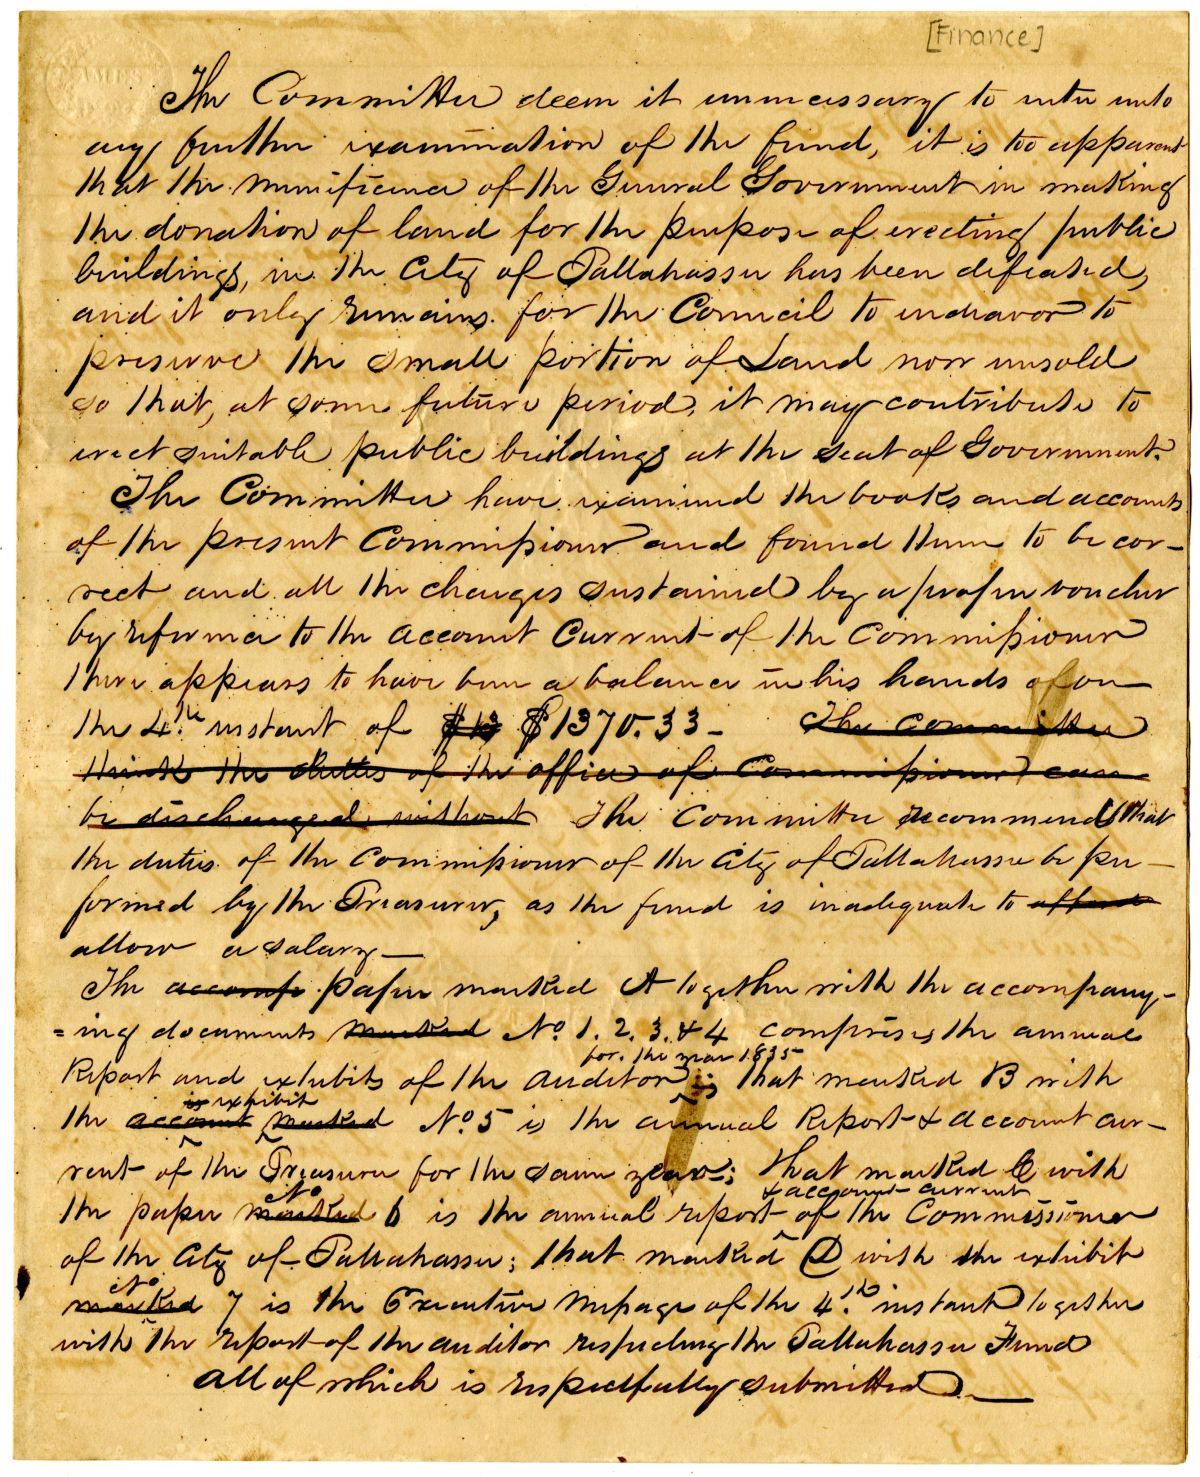 [Finance]
The Committee deem it unnecessary to enter into
any further examination of the fund, it is too apparent
that the munificence of the General Government in making
the donation of land for the purpose of erecting public
buildings, in the City of Tallahassee has been defeated,
and it only remains for the Council to endeavor to
preserve the small portion of Land now unsold
so that, at some future period, it may contribute to
erect suitable public buildings at the seat of Government.
The Committee have examined the books and accounts
of the present Commissioner and found them to be cor-
rect and all the charges sustained by a proper voucher
by reference to the account Current of the Commissioner
there appears to have been a balance in his hands of on
the 4th instant of $13 $1370.33 - The Committee
think the duties of the office of Commissioner can
be discharged without The Committee recommend that
the duties of the Commissioner of the City of Tallahassee be per-
formed by the Treasurer, as the fund is inadequate to afford
allow a salary -
The accomp paper marked A together with the accompany-
=ing documents marked No. 1. 2. 3. & 4 comprises the annual
for the year 1835
Report and exhibits of the Auditor; that marked B with
is exhibit
the account marked No. 5 is the annual Report & account cur-
rent of the Treasurer for the same year; that marked C with
No & account current
the paper marked 6 is the annual report of the Commissioner
of the City of Tallahassee; that marked D with the exhibit
No
marked 7 is the Executive Message of the 4th instant together
with the report of the auditor respecting the Tallahassee Fund
All of which is respectfully submitted